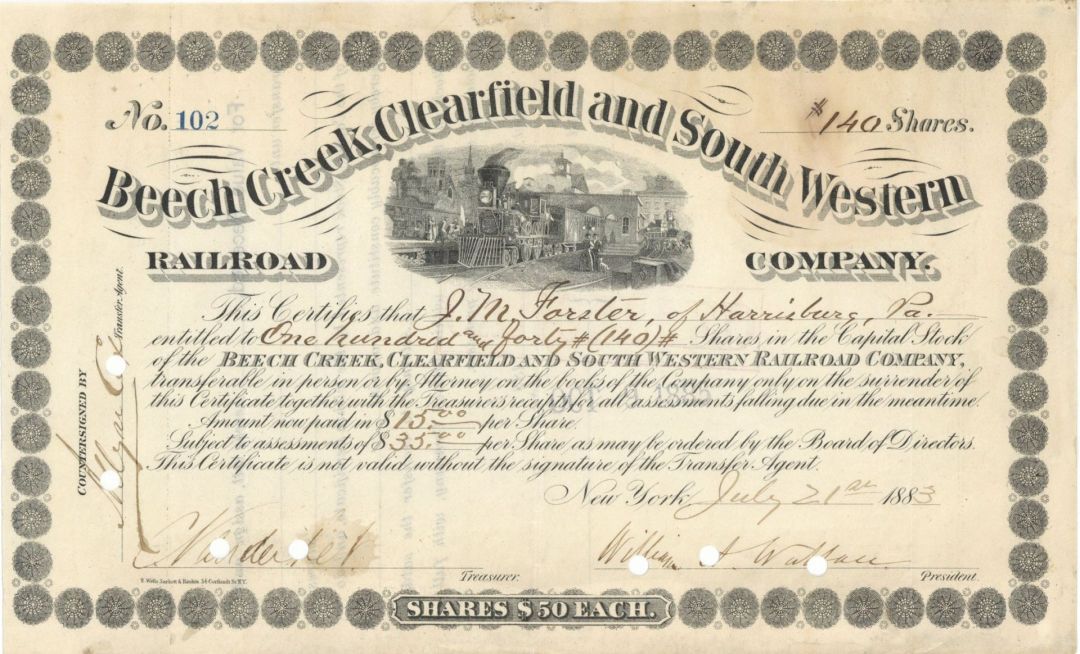 No. 102
140 Shares.
Beech Creek, Clearfield and South Western
RAILROAD COMPANY.
This Certifies that J. M. Forster, of Harrisburg, Pa.
entitled to One hundred and forty #(140)# Shares in the Capital Stock
of the BEECH CREEK, CLEARFIELD AND SOUTH WESTERN RAILROAD COMPANY,
transferable in person or by Attorney on the books of the Company only on the surrender of
this Certificate together with the Treasurers receipts for all assessments falling due in the meantime.
Amount now paid in $15.00 per Share.
Subject to assessments of $35.00 per Share, as may be ordered by the Board of Directors.
This Certificate is not valid without the signature of the Transfer Agent.
New York, July 21st 1883
COUNTERSIGNED BY
Transfer Agent.
C. Vanderbilt
Treasurer.
William A. Wallace
President.
SHARES $50 EACH.